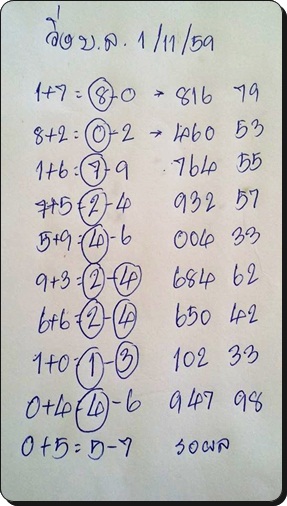 วิ่ง บ.ล. 1/11/59
1+7=8-0 → 816 79
8+2=0-2 → 460 53
1+6=7-9 764 55
7+5=2-4 932 57
5+9=4-6 004 33
9+3=2-4 684 62
6+6=2-4 650 42
1+0=1-3 102 33
0+4=4-6 947 98
0+5=5-7 รอผล